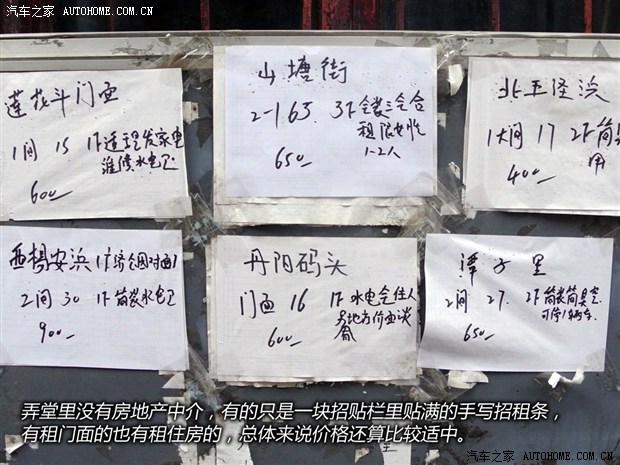 汽车之家 AUTOHOME.COM.CN
莲花斗门面
1间 15 1下适理发家电
维修水电卫
600
山塘街
2-163 3下仝装三气合
租限女性
1-2人
650
北王泾浜
1大间 17 2下简具
用
400
西杨安浜
2间 30 1下简装水电卫
900
丹阳码头
门面 16 1下水电气住人
600
潭子里
2间 27. 2下简装简具空
可停1辆车.
650
弄堂里没有房地产中介，有的只是一块招贴栏里贴满的手写招租条，
有租门面的也有租住房的，总体来说价格还算比较适中。
汽车之家 AUTOHOME.COM.CN